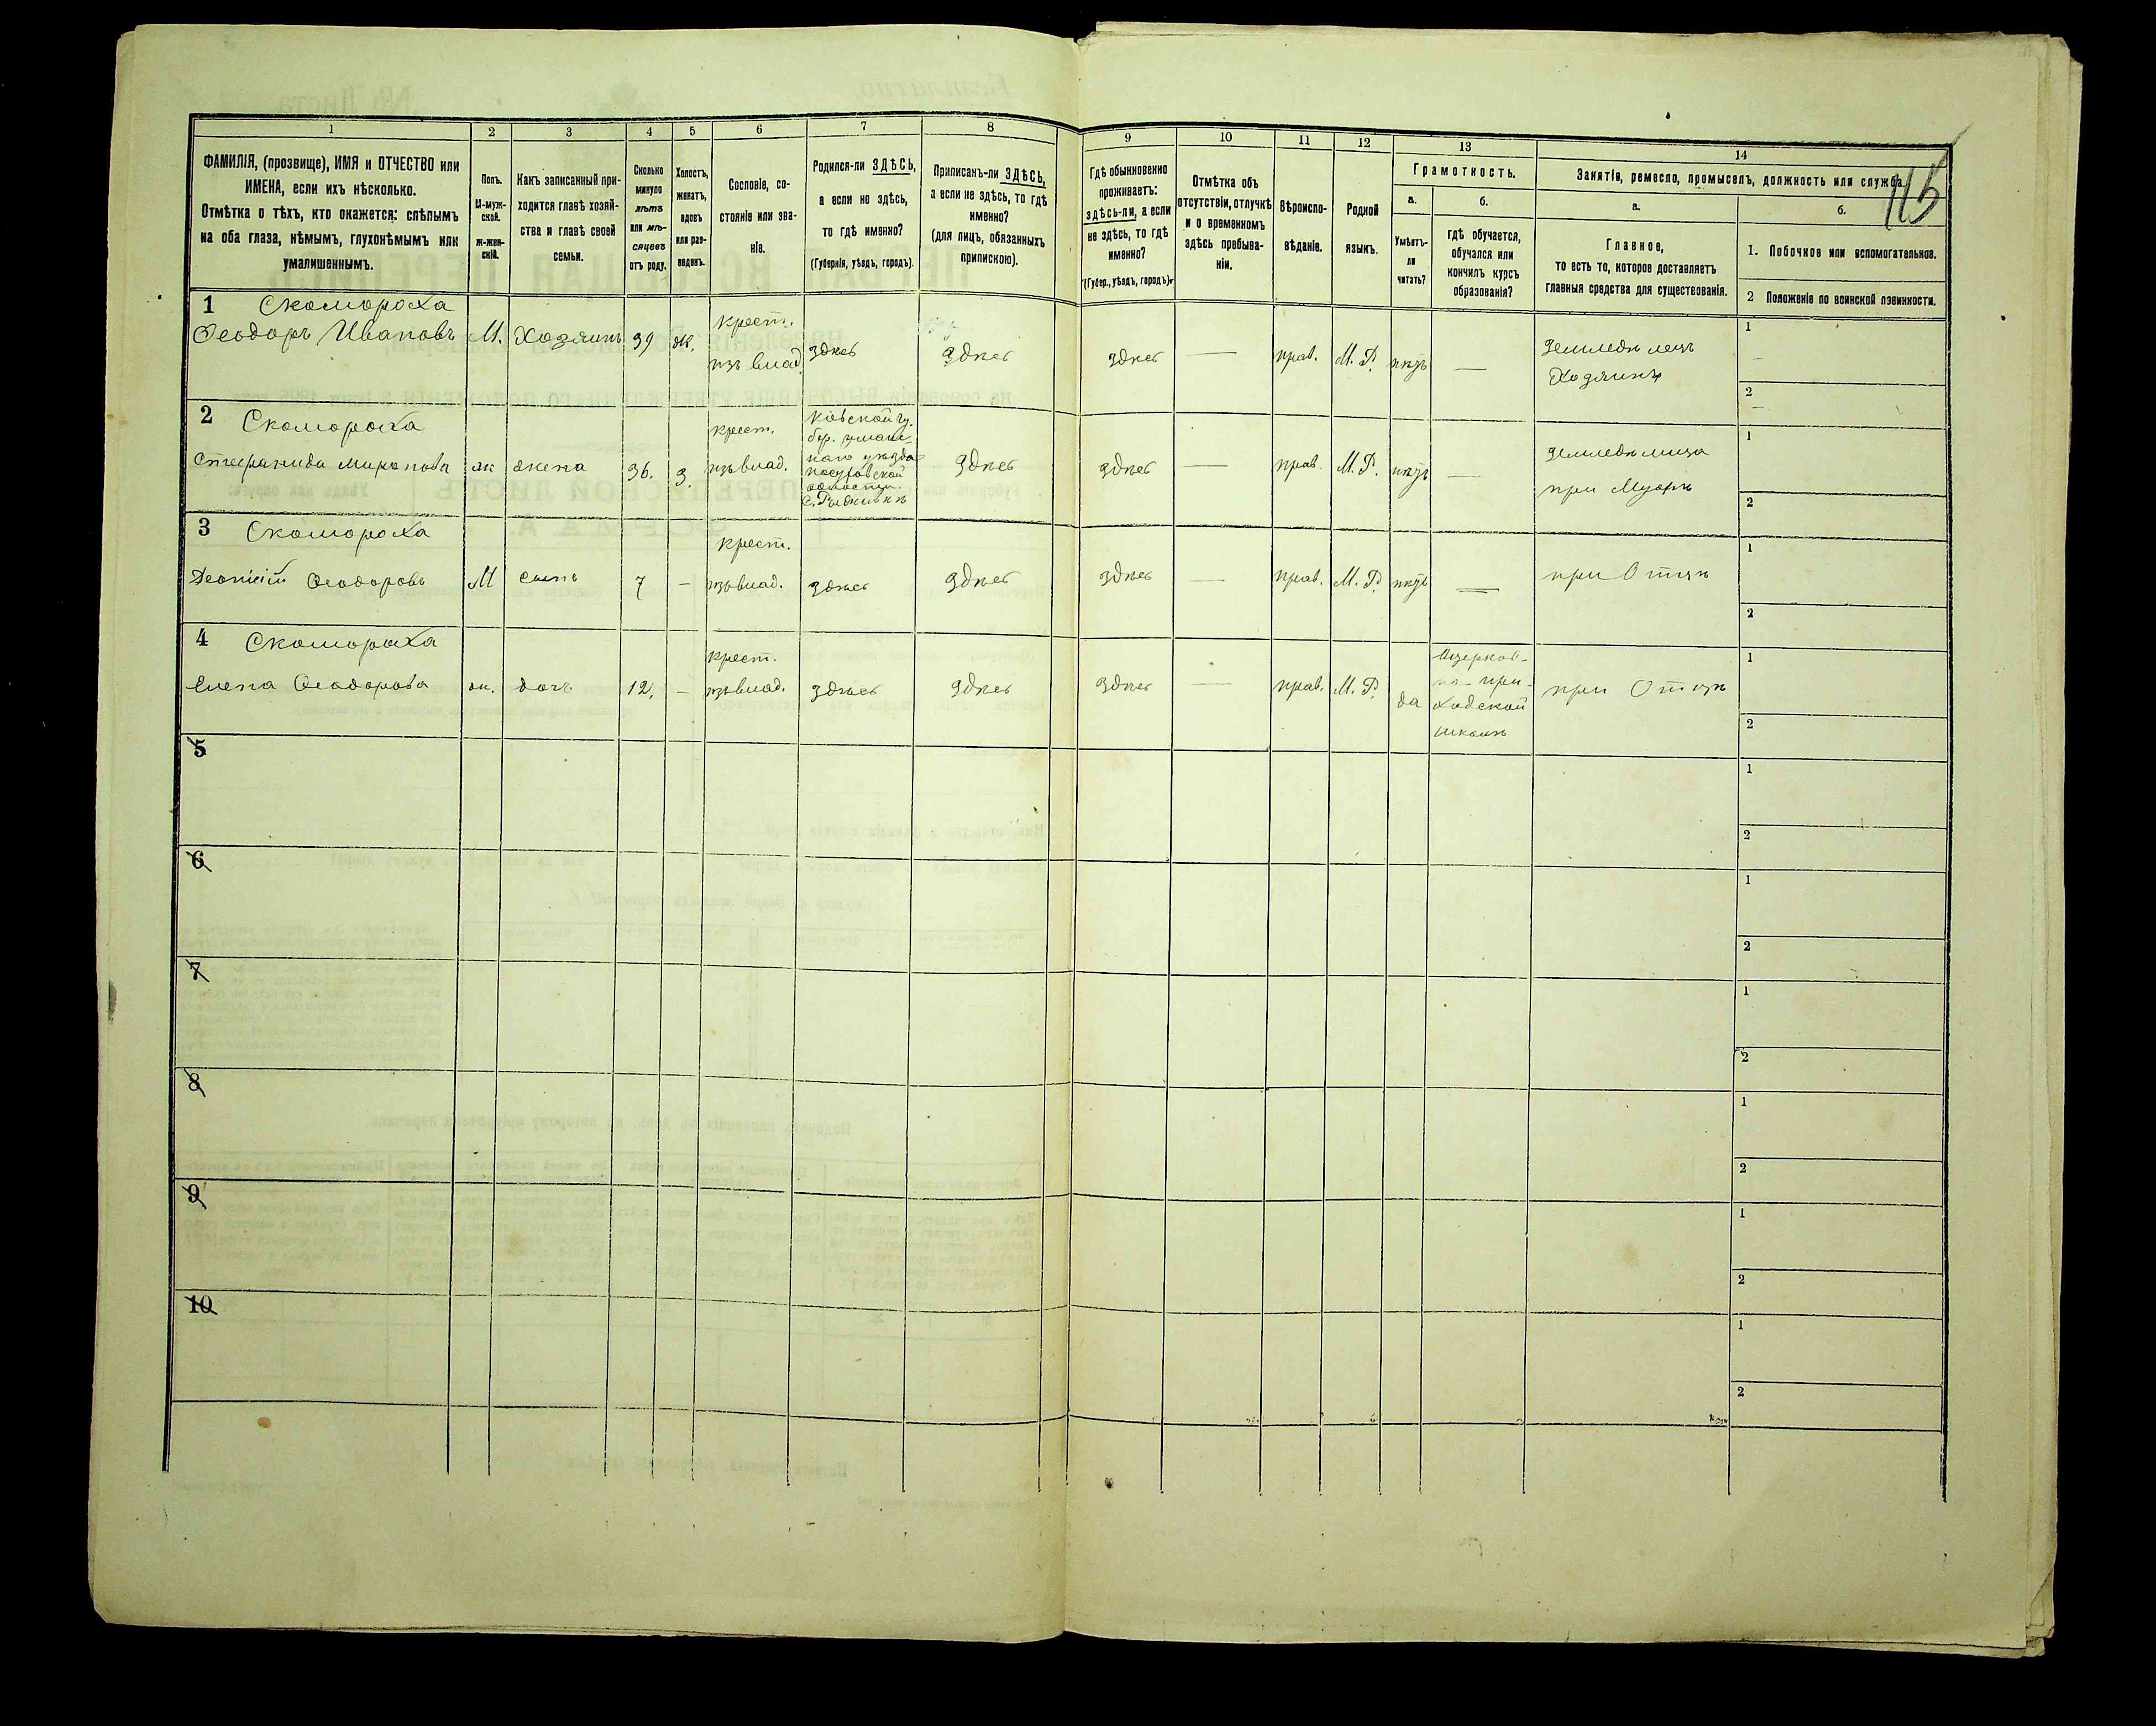 115
1 2 3 4 5 6 7 8 9 10 11 12 13 14
ФАМИЛІЯ, (прозвище), ИМЯ и ОТЧЕСТВО или
ИМЕНА, если ихъ нѣсколько.
Отмѣтка о тѣхъ, кто окажется: слѣпымъ
на оба глаза, нѣмымъ, глухонѣмымъ или
умалишеннымъ.
Полъ.
М-муж-
ской.
Ж-жен-
скій.
Какъ записанный при-
ходится главѣ хозяй-
ства и главѣ своей
семьи.
Сколько
минуло
лѣтъ
или мѣ-
сяцевъ
отъ роду.
Холостъ,
женатъ,
вдовъ
или раз-
веденъ.
Сословіе, со-
стояніе или зва-
ніе.
Родился-ли ЗДѢСЬ,
а если не здѣсь,
то гдѣ именно?
(Губернія, уѣздъ, городъ).
Приписанъ-ли ЗДѢСЬ,
а если не здѣсь, то гдѣ
именно?
(для лицъ, обязанныхъ
припискою).
Гдѣ обыкновенно
проживаетъ:
здѣсь-ли, а если
не здѣсь, то гдѣ
именно?
(Губер., уѣздъ, городъ).
Отмѣтка объ
отсутствіи, отлучкѣ
и о временномъ
здѣсь пребыва-
ніи.
Вѣроиспо-
вѣданіе.
Родной
языкъ.
Грамотность.
а.
Умѣетъ-
ли
читать?
б.
гдѣ обучается,
обучался или
кончилъ курсъ
образованія?
Занятіе, ремесло, промыселъ, должность или служба.
а.
Главное,
то есть то, которое доставляетъ
главныя средства для существованія.
б.
1. Побочное или вспомогательное.
2 Положеніе по воинской повинности.
1 Скомороха
Ѳеодоръ Ивановъ М. Хозяинъ 39 ж.
крест.
изъ влад.
здѣсь здѣсь здѣсь — прав. М. Р. нѣтъ —
Земледѣлецъ
Хозяинъ
1
2
2 Скомороха
Миронова ж жена 36. З.
крест.
изъ влад.
уѣзда
волости
здѣсь здѣсь — прав. М. Р. нѣтъ —
при Мужѣ
1
2
3 Скомороха
Ѳеодоровъ М сынъ 7 —
крест.
изъ влад.
здѣсь здѣсь здѣсь — прав. М. Р. нѣтъ —
при Отцѣ
1
2
4 Скомороха
Елена Ѳеодорова ж. дочь 12. —
крест.
изъ влад.
здѣсь здѣсь здѣсь — прав. М. Р. да
церков-
но-при-
ходской
школѣ
при Отцѣ
1
2
5
1
2
6
1
2
7
1
2
8
1
2
9
1
2
10
1
2